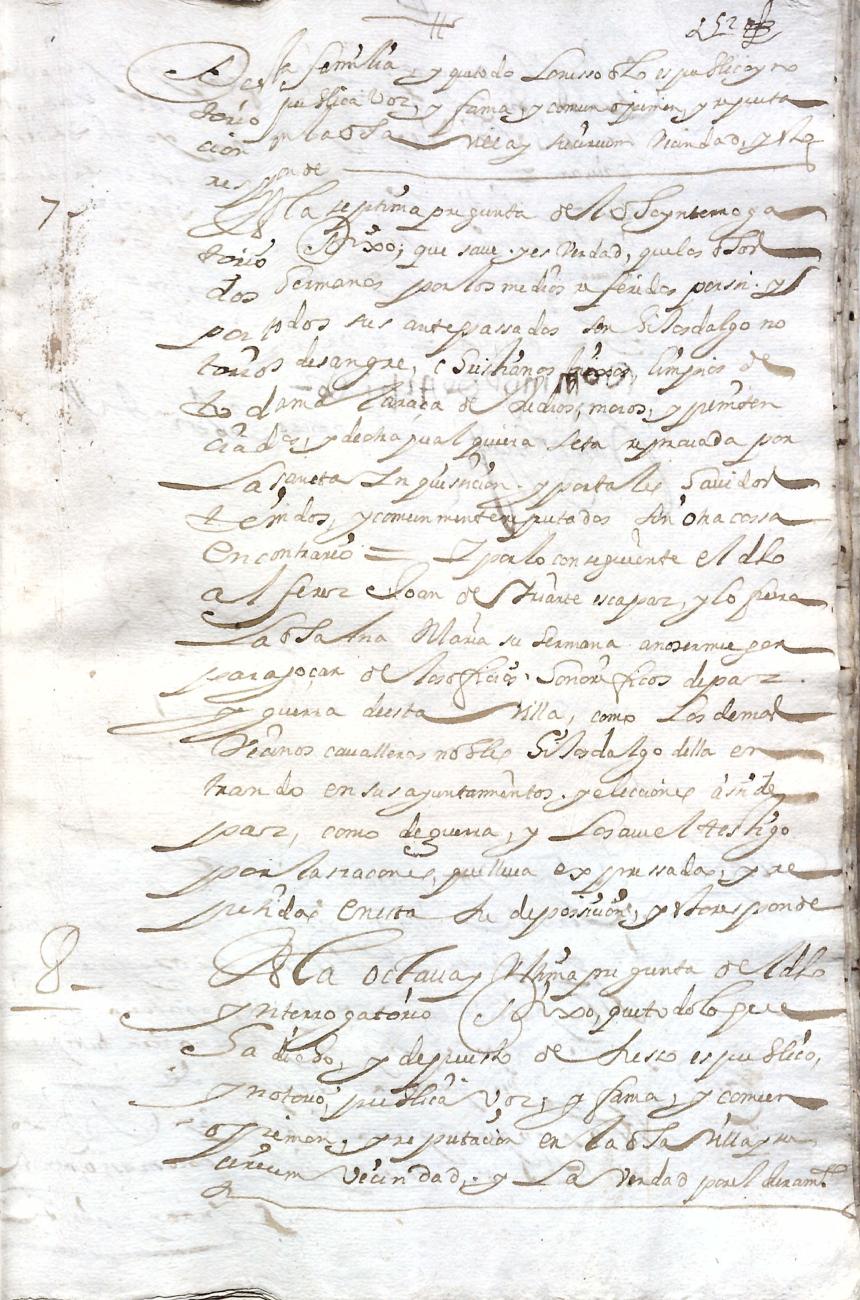 de esta familia, y que todo lo usso dho es publico y no
torio publica voz, y fama, y comun opinion, y reputa
cion en la dha villa y su circum vecindad, y esto
responde
7 A la septima pregunta de el dho ynterroga
torio Dixo, que save y es verdad, que los dhos
dos hermanos por los medios referidos por si y
por todos sus antepassados son hijosdalgo no
torios de sangre, cristianos viejos, limpios de
toda mala raça de Judios, moros, y peniten
ciados, y de otra qual quiera seta reprovada por
La sancta Inquisicion y por tales havidos
tenidos, y comunmente reputados sin otra cossa
en contrario = Y por lo conseguiente el dho
alferez Joan de Uriarte escapaz, y lo fuera
La dha Ana Maria su hermana a no ser muger
para goçar de los oficios honorificos de paz
y guerra de esta villa, como los demas
vecinos cavalleros nobles hijosdalgo della en
trando en sus ayuntamientos y elecciones asi de
paz, como de guerra, y lo save el testigo
por las raçones, que lleva expressadas, y re
petidas en esta su deposicion, y esto responde
8 A la octava y ultima pregunta de el dho
ynterrogatorio Dixo, que todo lo que
ha dicho, y depuesto de suso es publico,
y notorio, publica voz, y fama, y comun
opinion, y reputacion en la dha villa y su
circum vecindad, y La verdad por el juramto